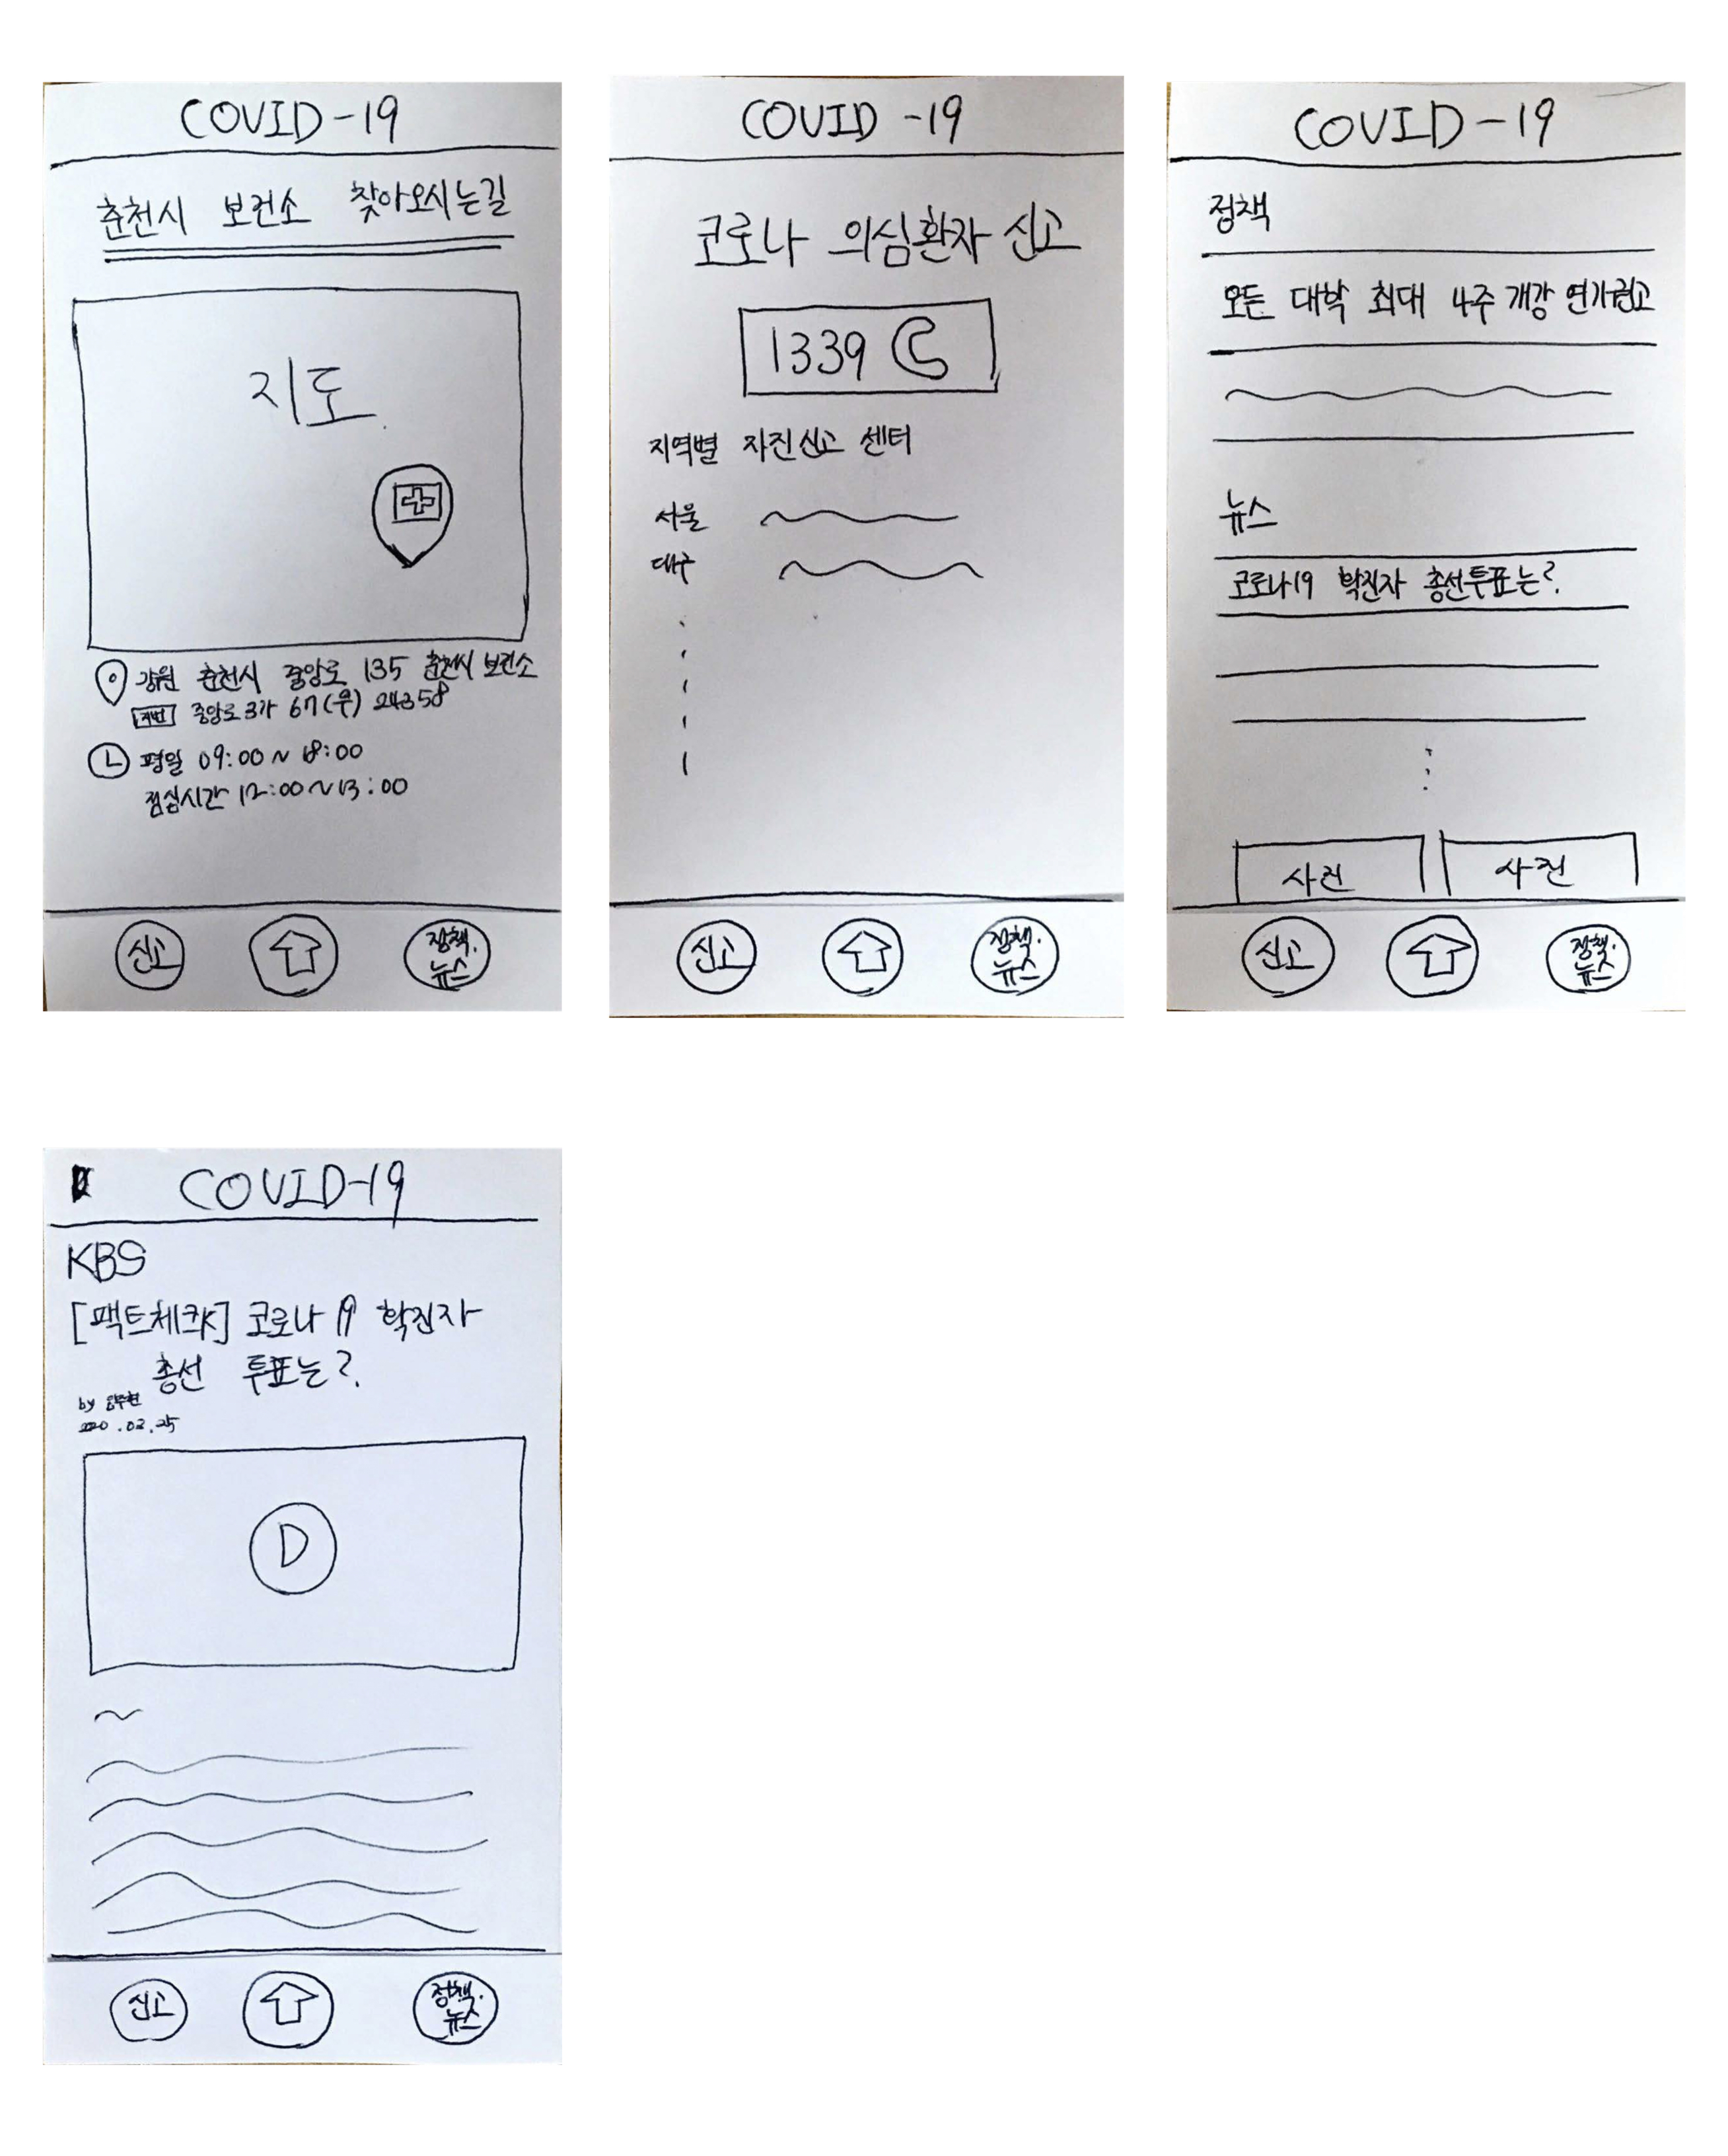 COVID-19
춘천시 보건소 찾아오시는길
지도
강원 춘천시 중앙로 135 춘천시 보건소
지번 중앙로3가 67(우) 24358
평일 09:00 ~ 18:00
점심시간 12:00 ~ 13:00
신고
정책.
뉴스
COVID-19
코로나 의심환자 신고
1339
지역별 자진신고 센터
서울
대구
신고
정책.
뉴스
COVID-19
정책
모든 대학 최대 4주 개강 연기권고
뉴스
코로나19 확진자 총선투표는?
사진 사진
신고
정책.
뉴스
COVID-19
KBS
[팩트체크K] 코로나 19 확진자
총선 투표는?
by
2020.02.25
신고
정책.
뉴스